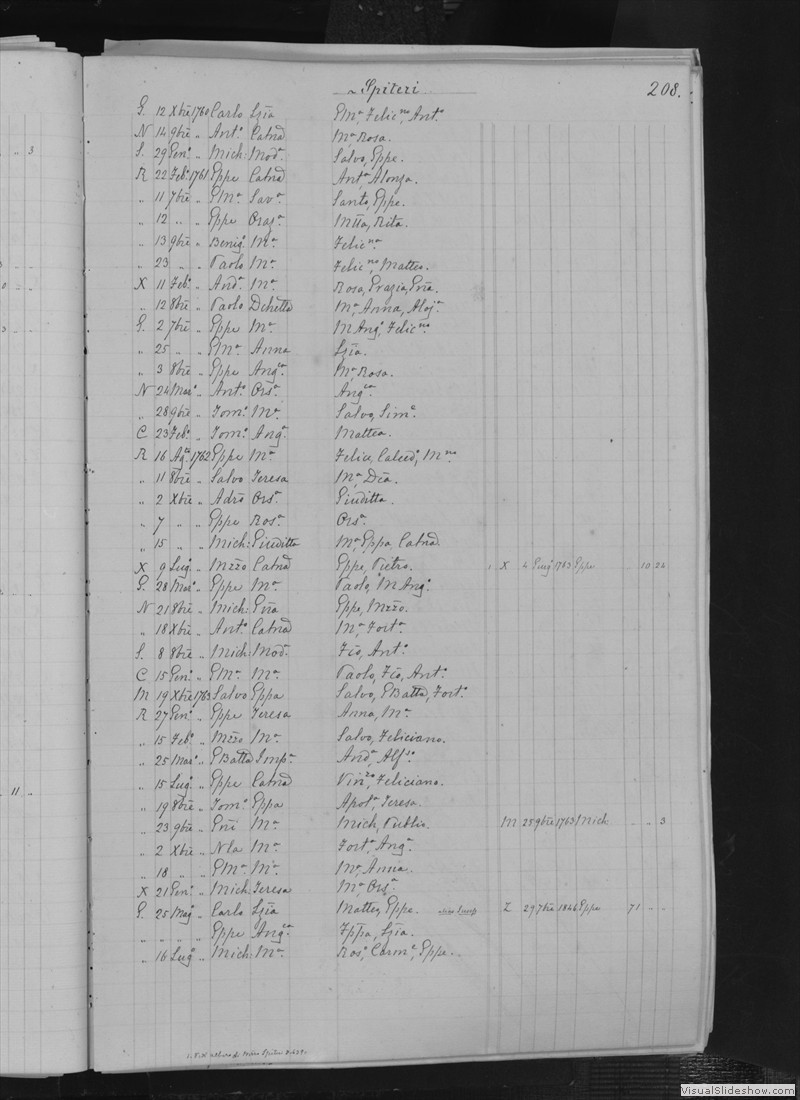 Spiteri 208.
G. 12 Xbre 1760 Carlo Lzia GMa. Felicno, Anto.
N 14 9bre " Anto. Catnad Ma. Rosa.
S. 29 Geno. " Mich: Moda. Salvo, Eppe.
R 22 Febo. 1761 Eppe Catnad Anta. Alonza.
" 11 7bre " GMa. Sava. Santo, Eppe.
" 12 " " Eppe Oraza. MIIa, Rita.
" 13 9bre " Benigo. Ma. Felicna.
" 23 " " Paolo Ma. Felicno, Matteo.
X 11 Febo. " Anda. Ma. Rosa, Grazia, Enia.
" 12 8bre " Paolo Dchetta Ma. Anna, Aloja.
G. 2 7bre " Eppe Ma. M Ango. Felicno.
" 25 " " GMa. Anna Lzia.
" 3 8bre " Eppe Angca. Ma. Rosa.
N 24 Maro. " Anto. Orsa. Angca.
" 28 9bre " Tomo. Ma. Salvo, Sime.
C 23 Febo. " Tomo. Anga. Mattea.
R 16 Ago. 1762 Eppe Ma. Felice, Calcedo. Mno.
" 11 8bre " Salvo Teresa Ma. Dea.
" 2 Xbre " Adrio Orsa. Giuditta.
" 7 " " Eppe Rosa. Orsa.
" 15 " " Mich: Giuditta Ma. Eppa, Catnad.
X 9 Lugo. " Mzzo Catnad Eppe, Pietro. 1 X 4 Giugo 1783 Eppe 10 22
G. 28 Maro. " Eppe Ma. Paolo, M Ango.
N 21 8bre " Mich: Enia Eppe, Mzzo.
" 18 Xbre " Anto. Catnad Ma. Forta.
S. 8 8bre " Mich: Moda. Fco, Anto.
C 15 Geno. " GMa. Ma. Paolo, Fco, Anto.
M 19 Xbre 1763 Salvo Eppa Salvo, GBatta, Forto.
R 27 Geno. " Eppe Teresa Anna, Ma.
" 15 Febo. " Mzzo Ma. Salvo, Feliciano.
" 25 Maro. " GBatta Impa. Anda, Alfso.
" 15 Lugo. " Eppe Catnad Vinzo, Feliciano.
" 19 8bre " Tomo. Eppa Apola. Teresa.
" 23 9bre " Enri Ma. Mich, Publio. M 28 9bre 1763 Mich " " 3
" 2 Xbre " Nla Ma. Forta. Anga.
" 18 " " GMa. Ma. Ma. Annia.
X 21 Geno. " Mich: Teresa Ma. Orsa.
G. 25 Mago. " Carlo Lzia Matteo, Eppe. Z 29 7bre 1846 Eppe 71 " "
" " " " Eppe Angca. Fppa, Lzia.
" 16 Lugo. " Mich: Ma. Rosa. Carme, Eppe.
VisualSlideshow.com